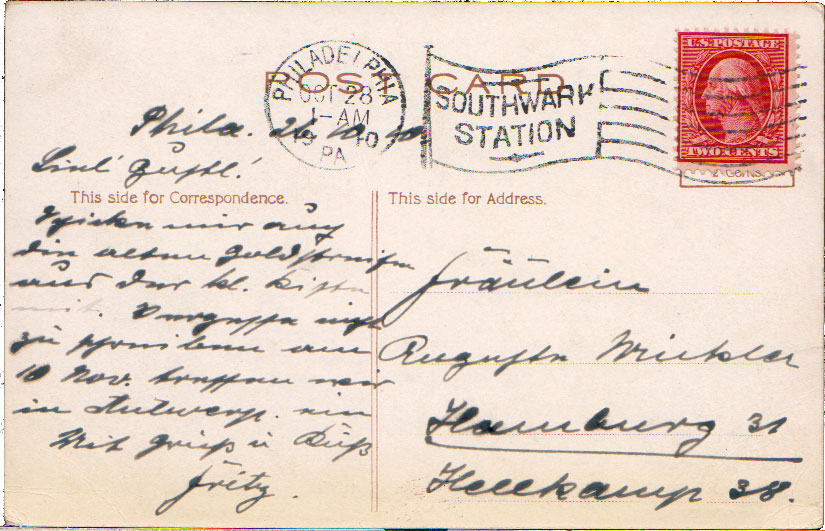 POST CARD
PHILADELPHIA
OCT 28
1-AM
1910
PA
SOUTHWARK
STATION
U.S. POSTAGE
TWO CENTS
2 Cents
Phila.
Gustl!
This side for Correspondence.
Schicke mir auch
die alten Goldstreifen
aus der kl. Kiste
mit. Vergesse nicht
zu schreiben am
10 Nov. treffen wir
in Antwerp. ein
Mit Gruß u Kuß
Fritz.
This side for Address.
Fräulein
Auguste Winkler
Hamburg 31
Hellkamp 38.